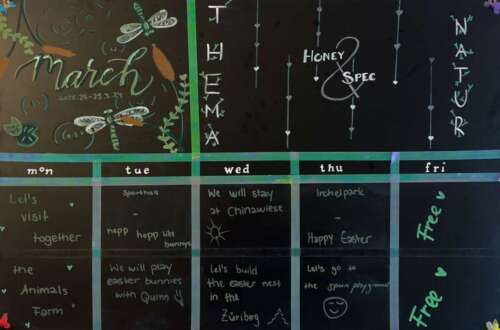 March
THEMA
HONEY
&
SPEC
NATUR
mon
tue
wed
thu
fri
Let's
visit
together
the
Animals
Farm
-
hopp hopp
bunnys
We will play
easter bunnies
with Quinn
We will stay
at Chinawiese
Let's build
the easter nest
in the
Züriberg
-
Happy Easter
Let's go to
the
Free
Free